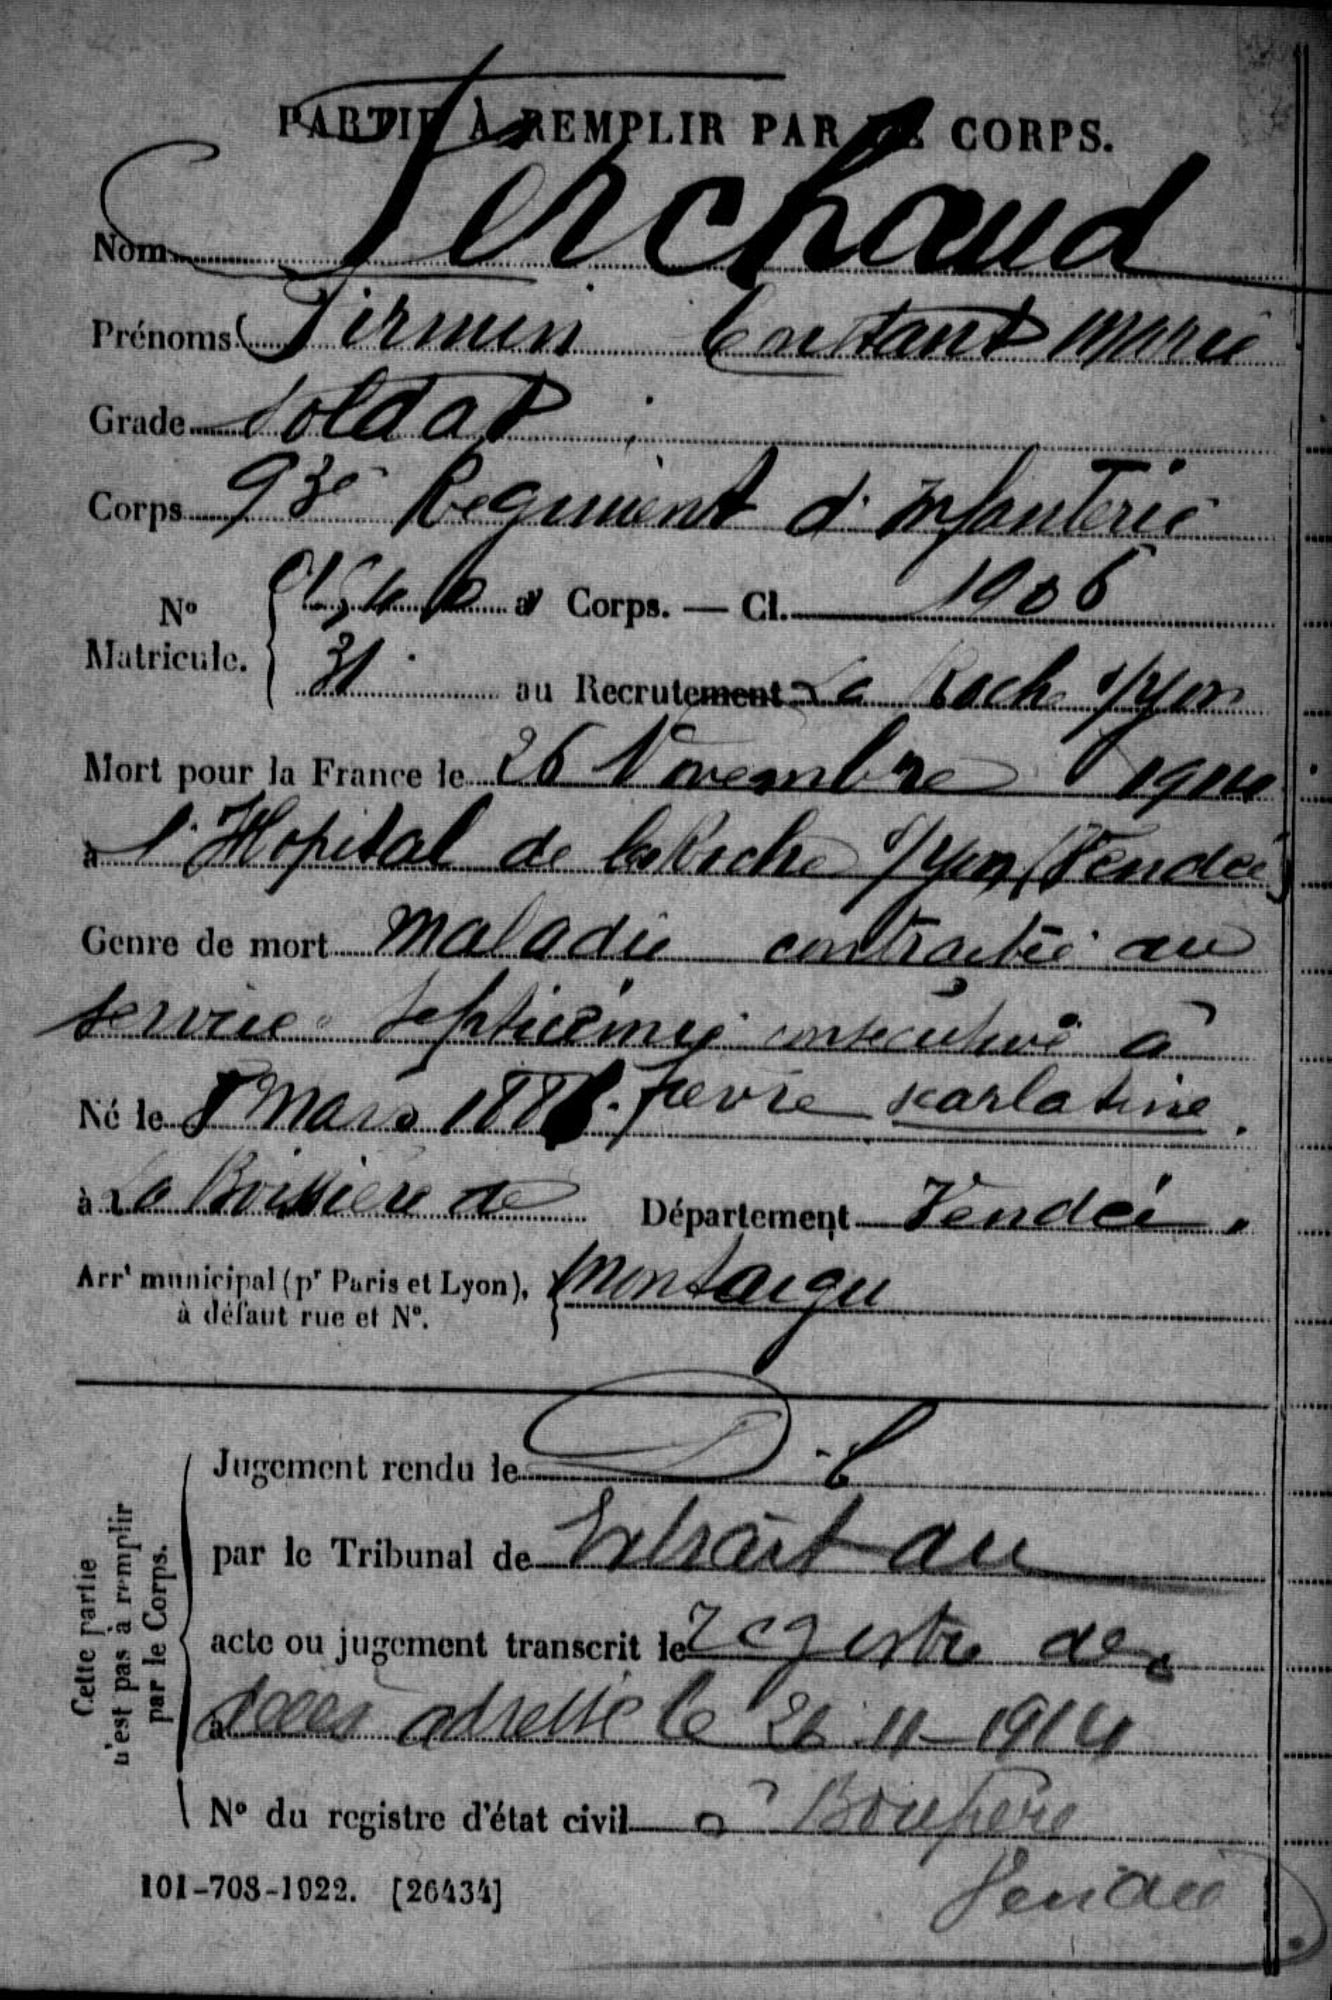 PARTIE À REMPLIR PAR LE CORPS.
Nom Ferchaud
Prénoms Firmin Constant Marie
Grade Soldat
Corps 93e Regiment d'Infanterie
No Matricule. { au Corps. — Cl. 1906
31 au Recrutement La Roche s/Yon
Mort pour la France le 26 Novembre 1914
à l'Hopital de la Roche s/Yon (Vendée)
Genre de mort Maladie contractée au
service septicémie consécutive à
Né le 8 Mars 1886. fievre scarlatine.
à La Boissière de Département Vendée.
Arrt municipal (pr Paris et Lyon), à défaut rue et No. } Montaigu
Cette partie n'est pas à remplir par le Corps.
Jugement rendu le
par le Tribunal de Extrait du
acte ou jugement transcrit le registre des
à décès adressé le 26-11-1914
No du registre d'état civil à Boupère
Vendée
101-708-1922. [26434]